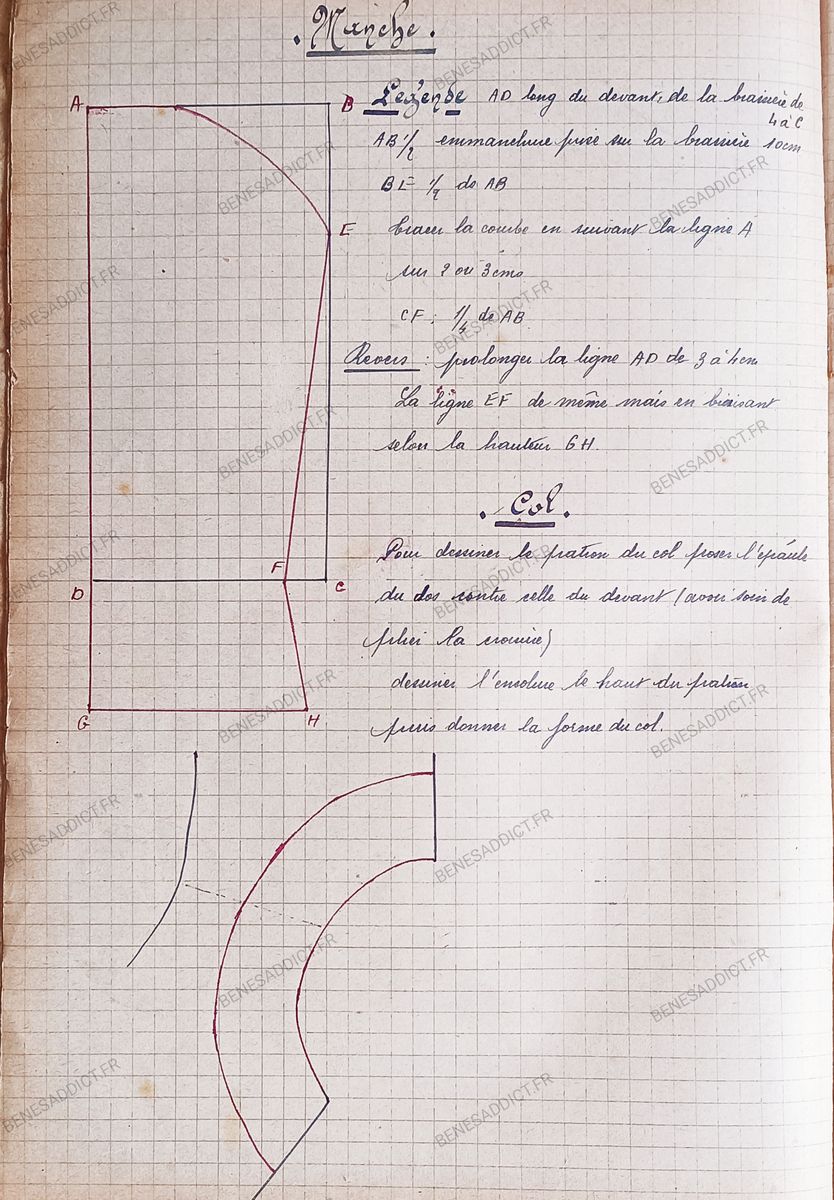 . Manche .
A
B
Légende AD long du devant, de la brassière de
4 à C
AB 1/2 emmanchure prise sur la brassière 10cm
BE 1/2 de AB
E
tracer la courbe en suivant la ligne A
sur 2 ou 3 cms
CF : 1/ de AB
Revers : prolonger la ligne AD de 3 à 4cm
La ligne EF de même mais en biaisant
selon la hauteur GH.
. Col .
Pour dessiner le patron du col poser l'épaule
F
D
C
du dos contre celle du devant (avoir soin de
plier la croisure)
dessiner l'encolure le haut du patron
G
H
puis donner la forme du col.
BENESADDICT.FR